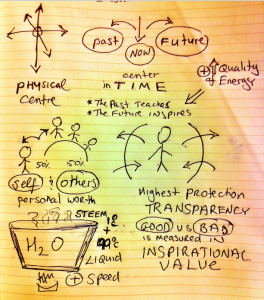 past
NOW
Future
PHYSICAL
CENTRE
center
in TIME
* The Past Teaches
* The Future INSPIRES
+ Quality
of
Energy
50% 50%
self & others
personal worth
STEEM
H2O
1%
+
99%
LIQUID
+ Speed
Highest Protection
TRANSPARENCY
GOOD VS BAD
is measured in
INSPIRATIONAL
VALUE